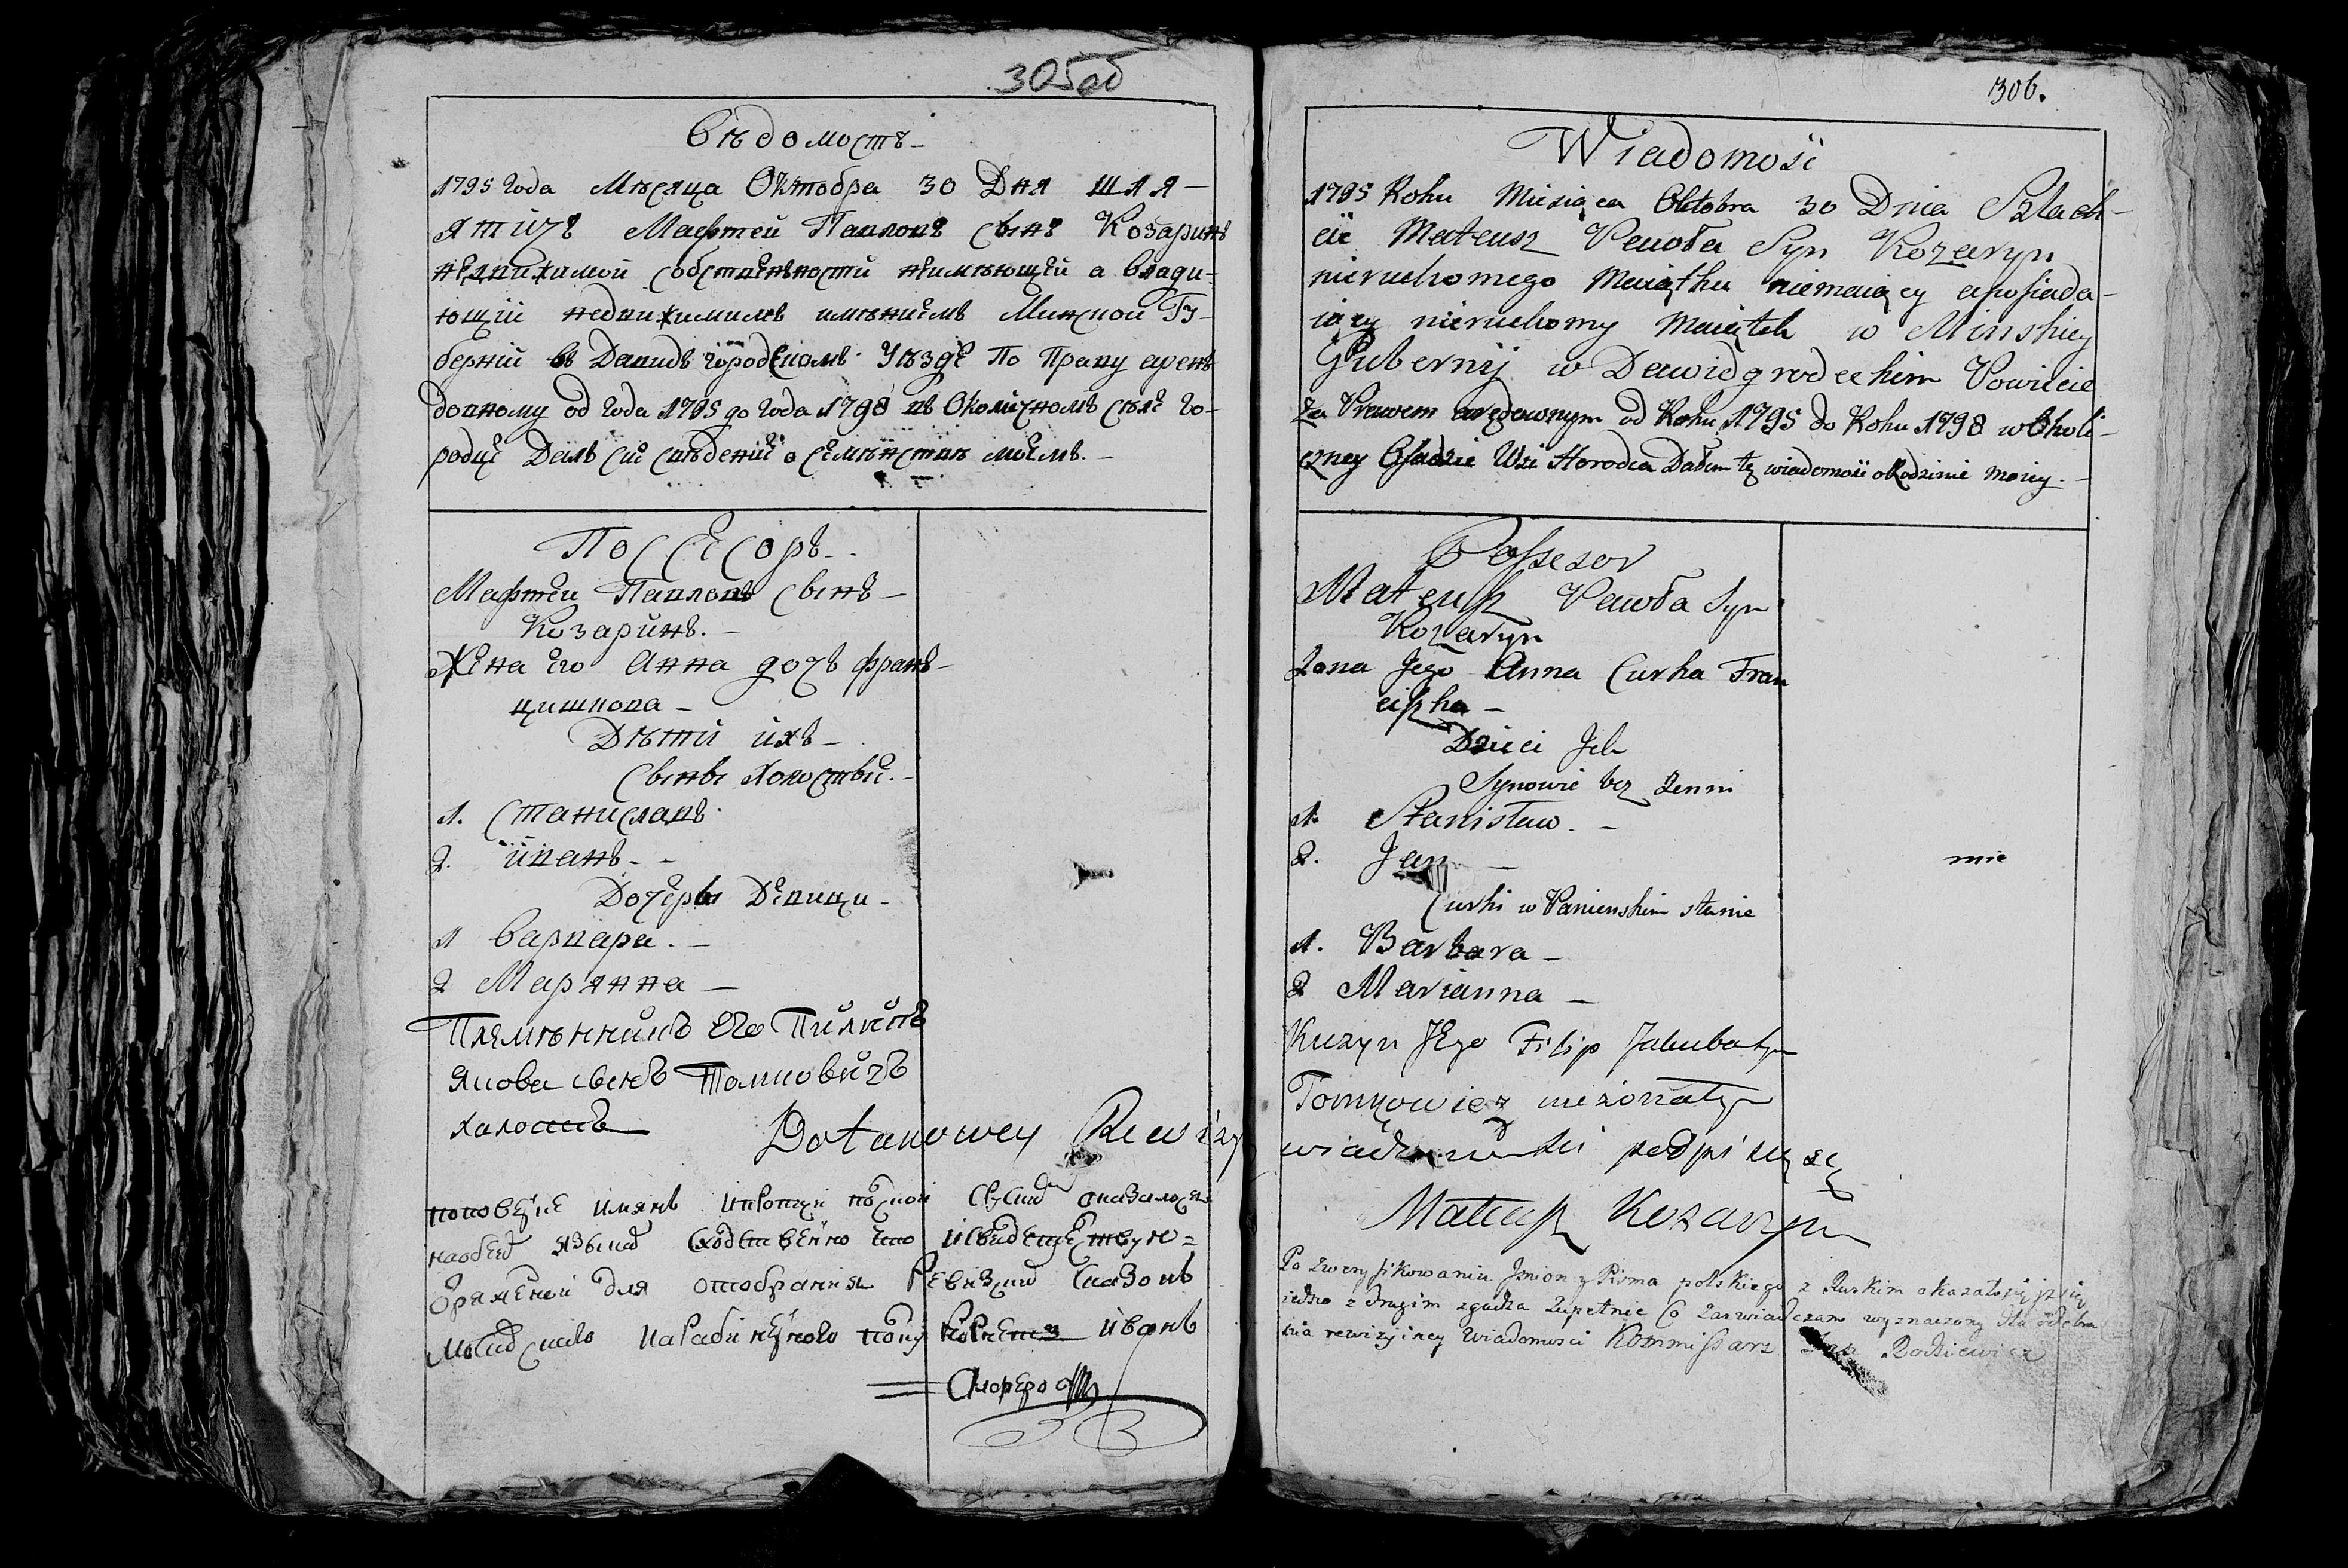 305об
Вѣдомость
1795 года Мѣсяца Октобра 30 Дня шля-
хтичъ Мафтеи Павловъ сынъ Козаринъ
недвижимой собственности неимѣющей а влади-
ющій недвижимимъ имѣниемъ Минской Гу-
берніи въ Давидъ городскомъ Уѣзде По Праву арен-
довному од года 1795 до года 1798 въ Околичномъ селе Го-
родце Далъ сие сведение о семѣйстве моемъ.
Поссесоръ
Мафтеи Павловъ сынъ
Козаринъ.
Жена его Анна дочъ Франъ-
цишкова
Дѣти ихъ
сыны холостые.
1. Станиславъ.
2. Иванъ
Дочеры Девици
1 Варвара.
2 Марянна
Племѣнникъ Его Пилипъ
Якова сынъ Томковичъ
холостъ
Do takowey Rewizyi
для отобрания Ревизких Сказокъ
Иванъ
306.
Wiadomość
1795 Roku Miesiąca Oktobra 30 Dnia Szlach-
cic Mateusz Pawła Syn Kozaryn
nieruchomego Maiątku niemaiący a possiada-
iący nieruchomy Maiątek w Minskiey
Gubernij w Dawidgrodeckim Powiecie
za Prawem arędownym od Roku 1795 do Roku 1798 w Okoli-
czney Osadzie Wsi Horodca Dałem tę wiadomość o Rodzinie moiey.
Possesor
Mateusz Pawła Syn
Kozaryn
Zona Jego Anna Curka Fran
ciszka
Dzieci Ich
Synowie bez Zenni
1. Stanisław.
2. Jan
nie
Curki w Panienskim stanie
1. Barbara
2 Marianna
Kuzyn Jego Filip Jakuba syn
Tomkowicz nieżonaty
wiadomości podpisuję się
Mateusz Kozaryn
Po zweryfikowaniu Imion z Pisma polskiego z Ruskim okazało się iż się
iedno z drugim zgadza Zupełnie Co zaswiadczam wyznaczony dla odebra
nia rewizyiney Wiadomosci Kommissarz Jan Rodziewicz